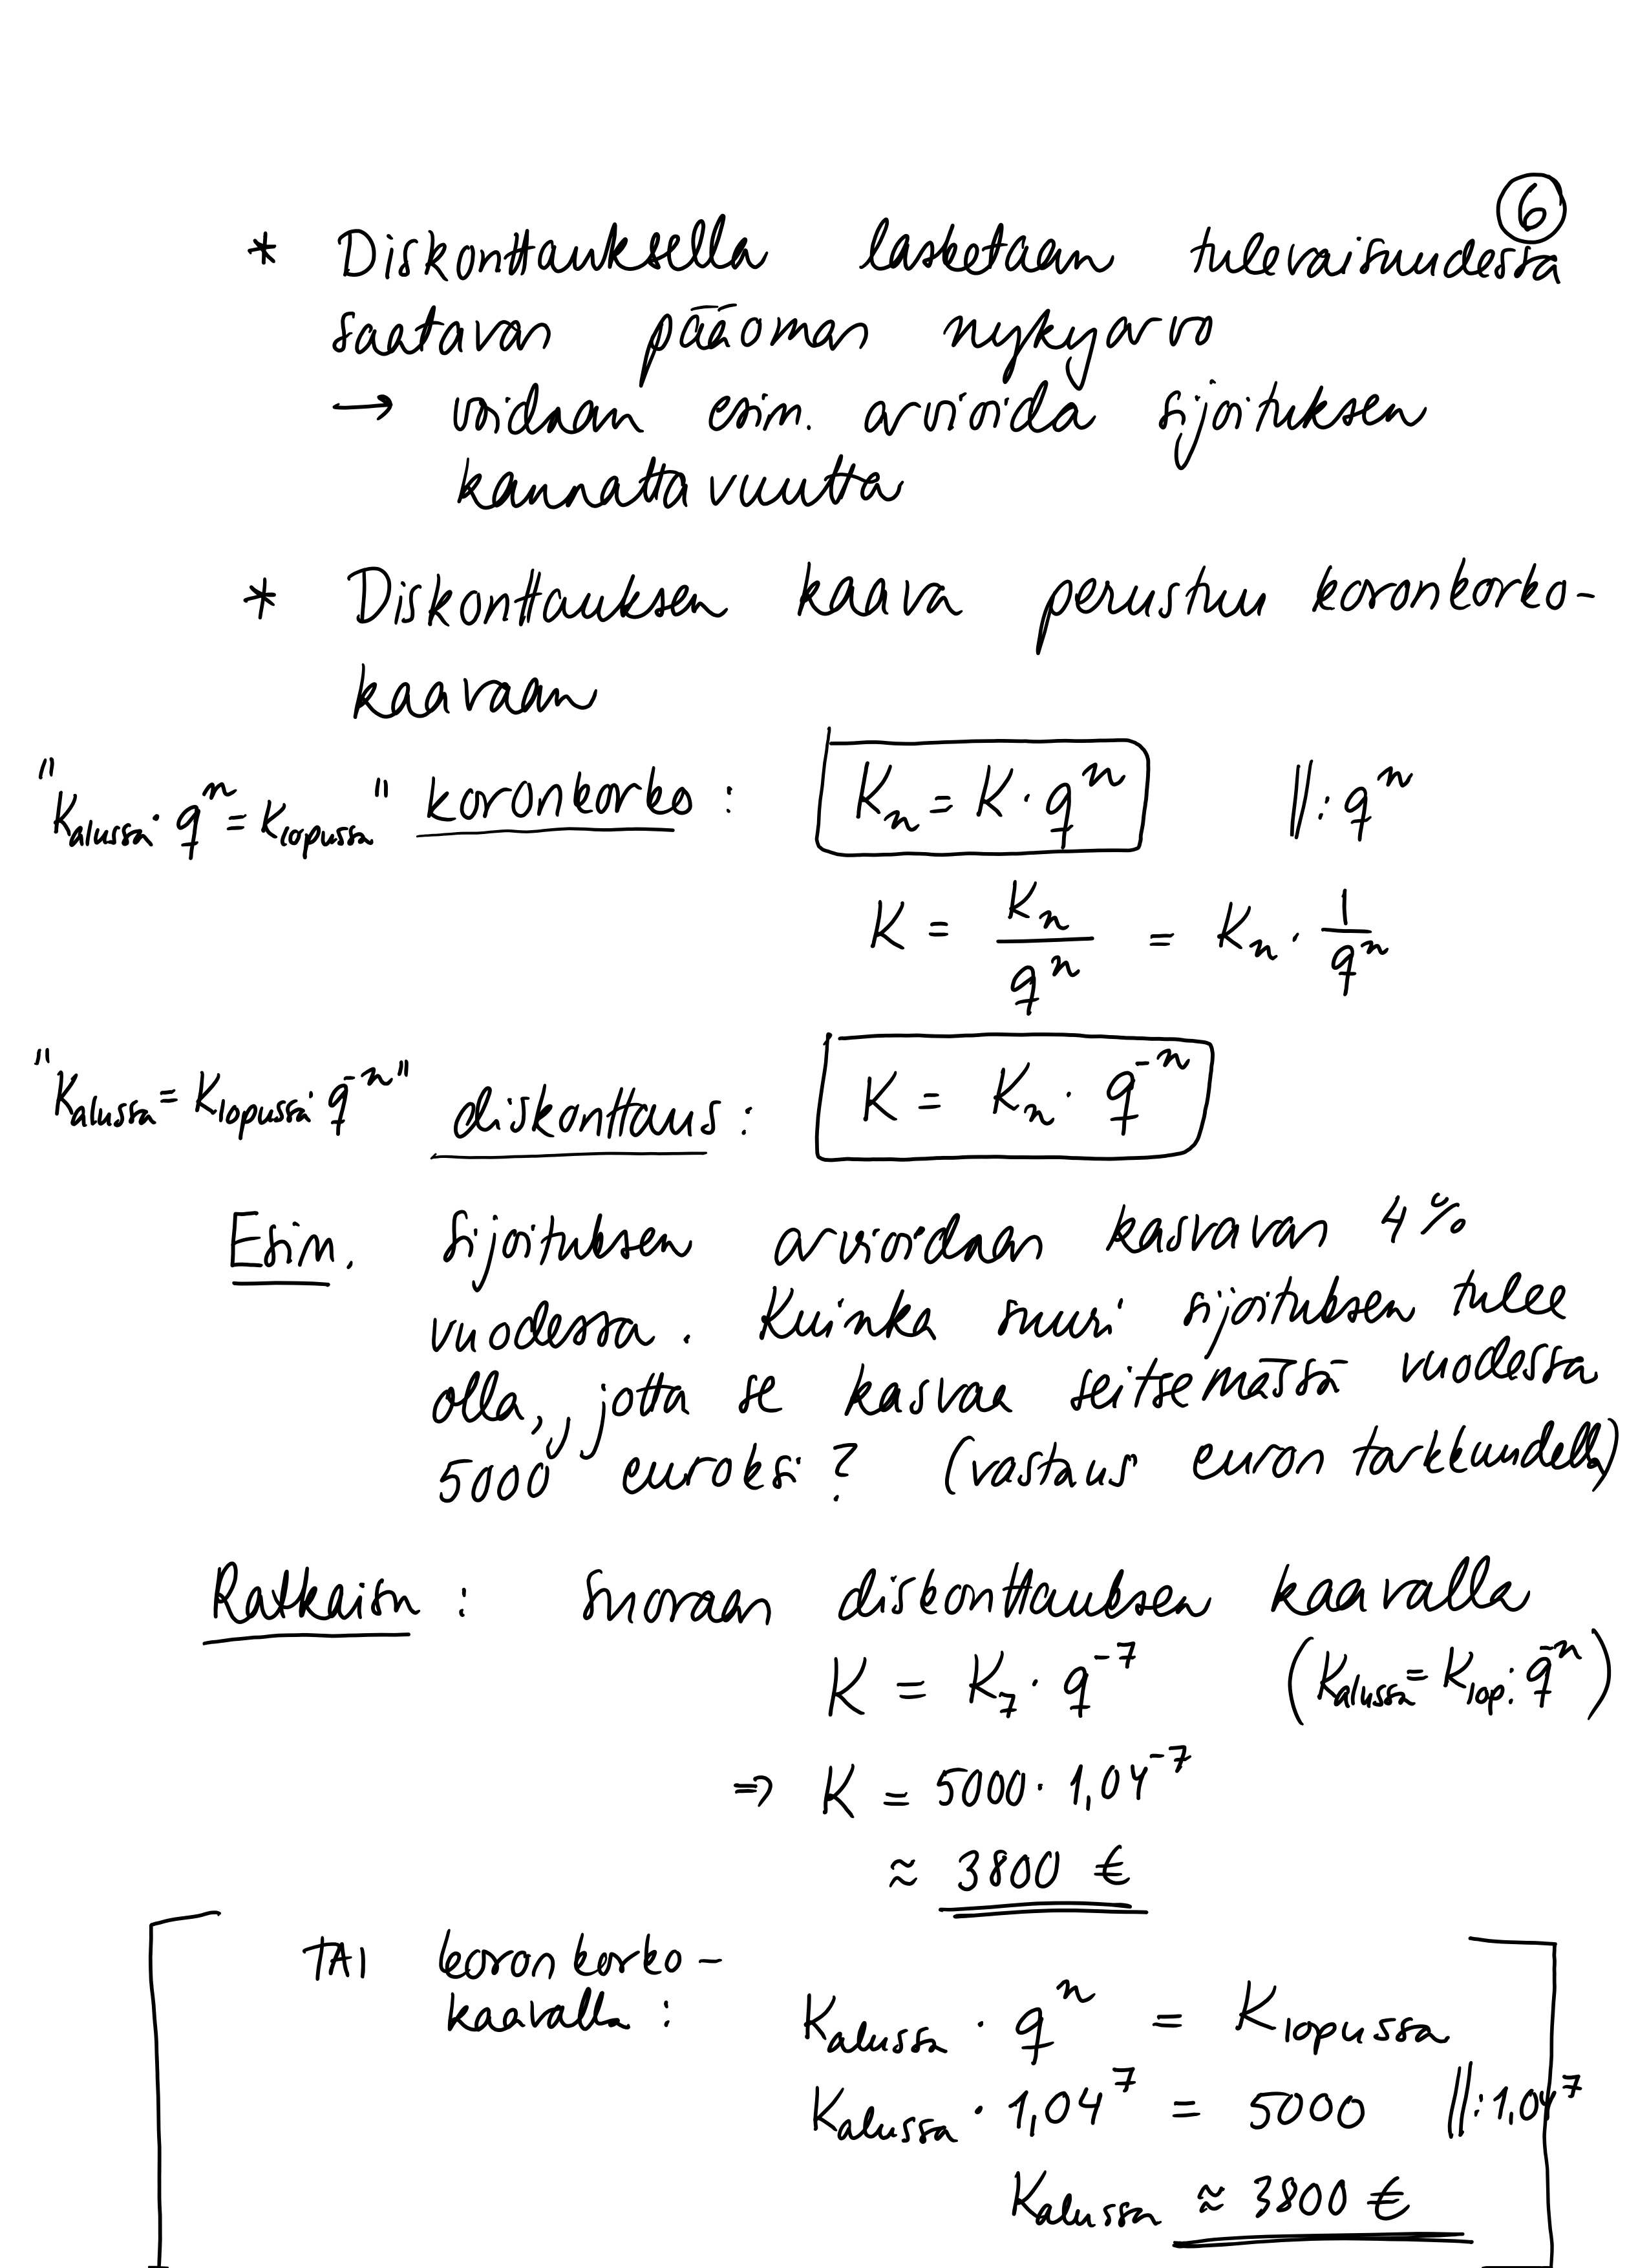 6
* Diskonttauksella lasketaan tulevaisuudessa
saatavan pääoman nykyarvo
→ voidaan esim. arvioida sijoituksen
kannattavuutta
* Diskonttauksen kaava perustuu koronkorko-
kaavaan
"K_alussa · q^n = K_lopussa" koronkorko : K_n = K · q^n ‖ : q^n
K = K_n / q^n = K_n · 1/q^n
"K_alussa = K_lopussa · q^-n" diskonttaus : K = K_n · q^-n
Esim. Sijoituksen arvioidaan kasvavan 4 %
vuodessa. Kuinka suuri sijoituksen tulee
olla, jotta se kasvaa seitsemässä vuodessa
5000 euroksi? (vastaus euron tarkkuudella)
Ratkaisu : Suoraan diskonttauksen kaavalla
K = K_7 · q^-7 (K_alussa = K_lop. · q^-n)
⇒ K = 5000 · 1,04^-7
≈ 3800 €
TAI koronkorko-
kaavalla :
K_alussa · q^n = K_lopussa
K_alussa · 1,04^7 = 5000 ‖ : 1,04^7
K_alussa ≈ 3800 €